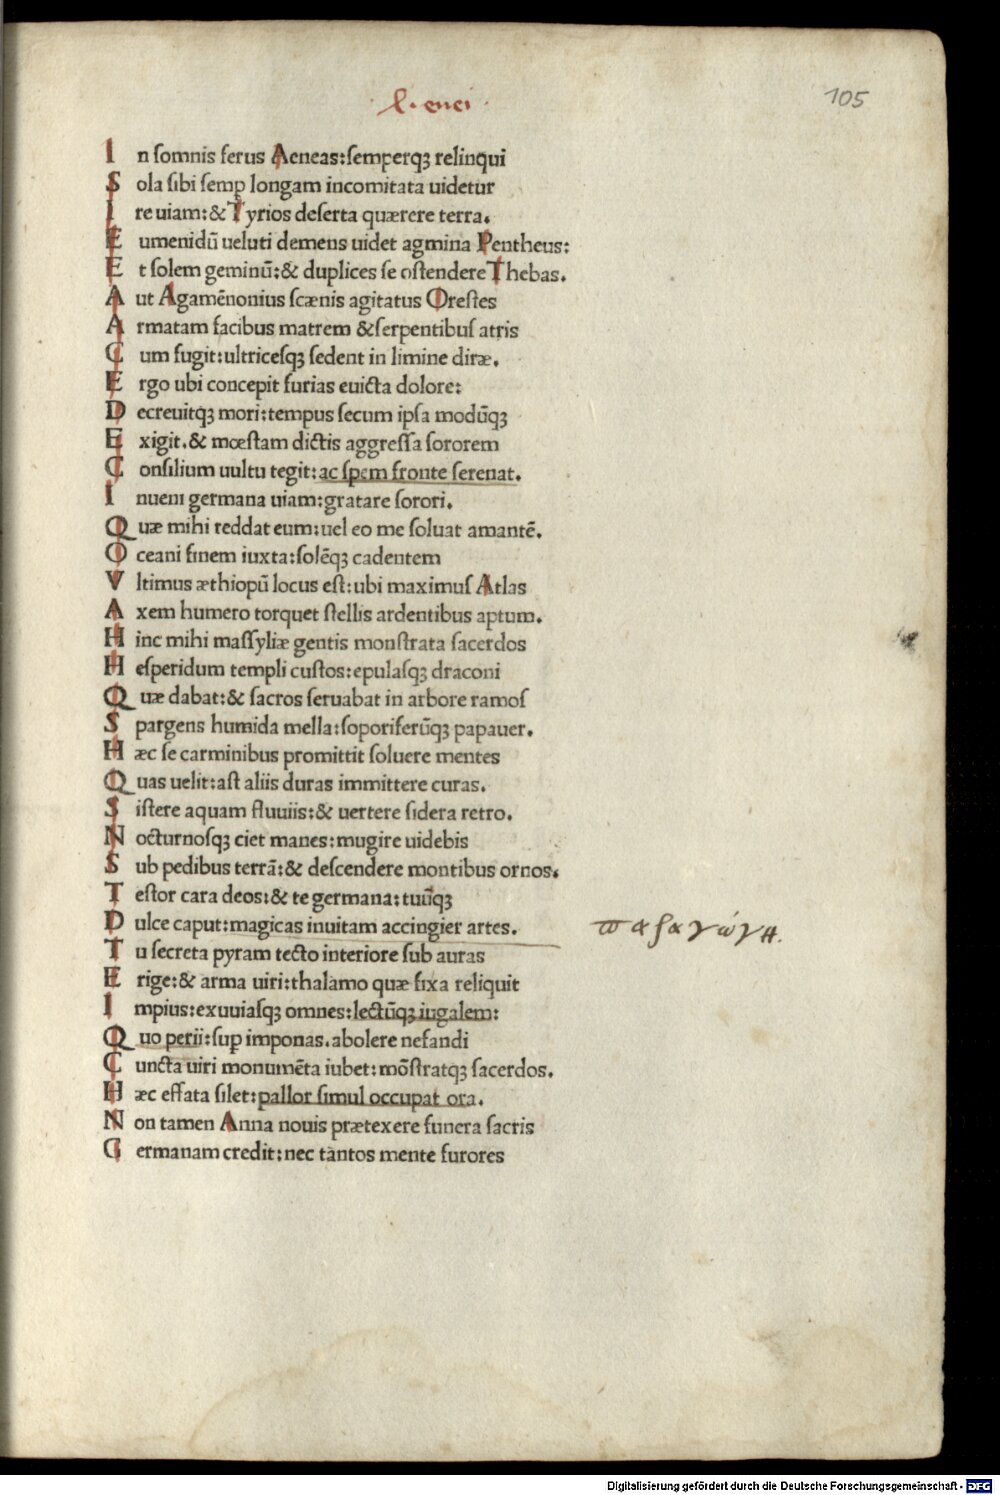 l. enei
105
I n ſomnis ferus Aeneas:ſemperqꝫ relinqui
S ola ſibi ſemꝑ longam incomitata uidetur
I re uiam:& Tyrios deſerta quærere terra.
E umenidū ueluti demens uidet agmina Pentheus:
E t ſolem geminū:& duplices ſe oſtendere Thebas.
A ut Agamēnonius ſcænis agitatus Oreſtes
A rmatam facibus matrem &ſerpentibuſ atris
C um fugit:ultriceſqꝫ ſedent in limine diræ.
E rgo ubi concepit furias euicta dolore:
D ecreuitqꝫ mori:tempus ſecum ipſa modūqꝫ
E xigit.& mœſtam dictis aggreſſa ſororem
C onſilium uultu tegit:ac ſpem fronte ſerenat.
I nueni germana uiam:gratare ſorori.
Q uæ mihi reddat eum:uel eo me ſoluat amantē.
O ceani finem iuxta:ſolēqꝫ cadentem
V ltimus æthiopū locus eſt:ubi maximuſ Atlas
A xem humero torquet ſtellis ardentibus aptum.
H inc mihi maſſyliæ gentis monſtrata ſacerdos
H eſperidum templi cuſtos:epulaſqꝫ draconi
Q uæ dabat:& ſacros ſeruabat in arbore ramoſ
S pargens humida mella:ſoporiferūqꝫ papauer.
H æc ſe carminibus promittit ſoluere mentes
Q uas uelit:aſt aliis duras immittere curas.
S iſtere aquam fluuiis:& uertere ſidera retro.
N octurnoſqꝫ ciet manes:mugire uidebis
S ub pedibus terrā:& deſcendere montibus ornos.
T eſtor cara deos:& te germana:tuūqꝫ
D ulce caput:magicas inuitam accingier artes.
παραγώγη.
T u ſecreta pyram tecto interiore ſub auras
E rige:& arma uiri:thalamo quæ fixa reliquit
I mpius:exuuiaſqꝫ omnes:lectūqꝫ iugalem:
Q uo perii:ſuꝑ imponas.abolere nefandi
C uncta uiri monumēta iubet:mōſtratqꝫ ſacerdos.
H æc effata ſilet:pallor ſimul occupat ora.
N on tamen Anna nouis prætexere funera ſacris
G ermanam credit:nec tantos mente furores
Digitalisierung gefördert durch die Deutsche Forschungsgemeinschaft - DFG